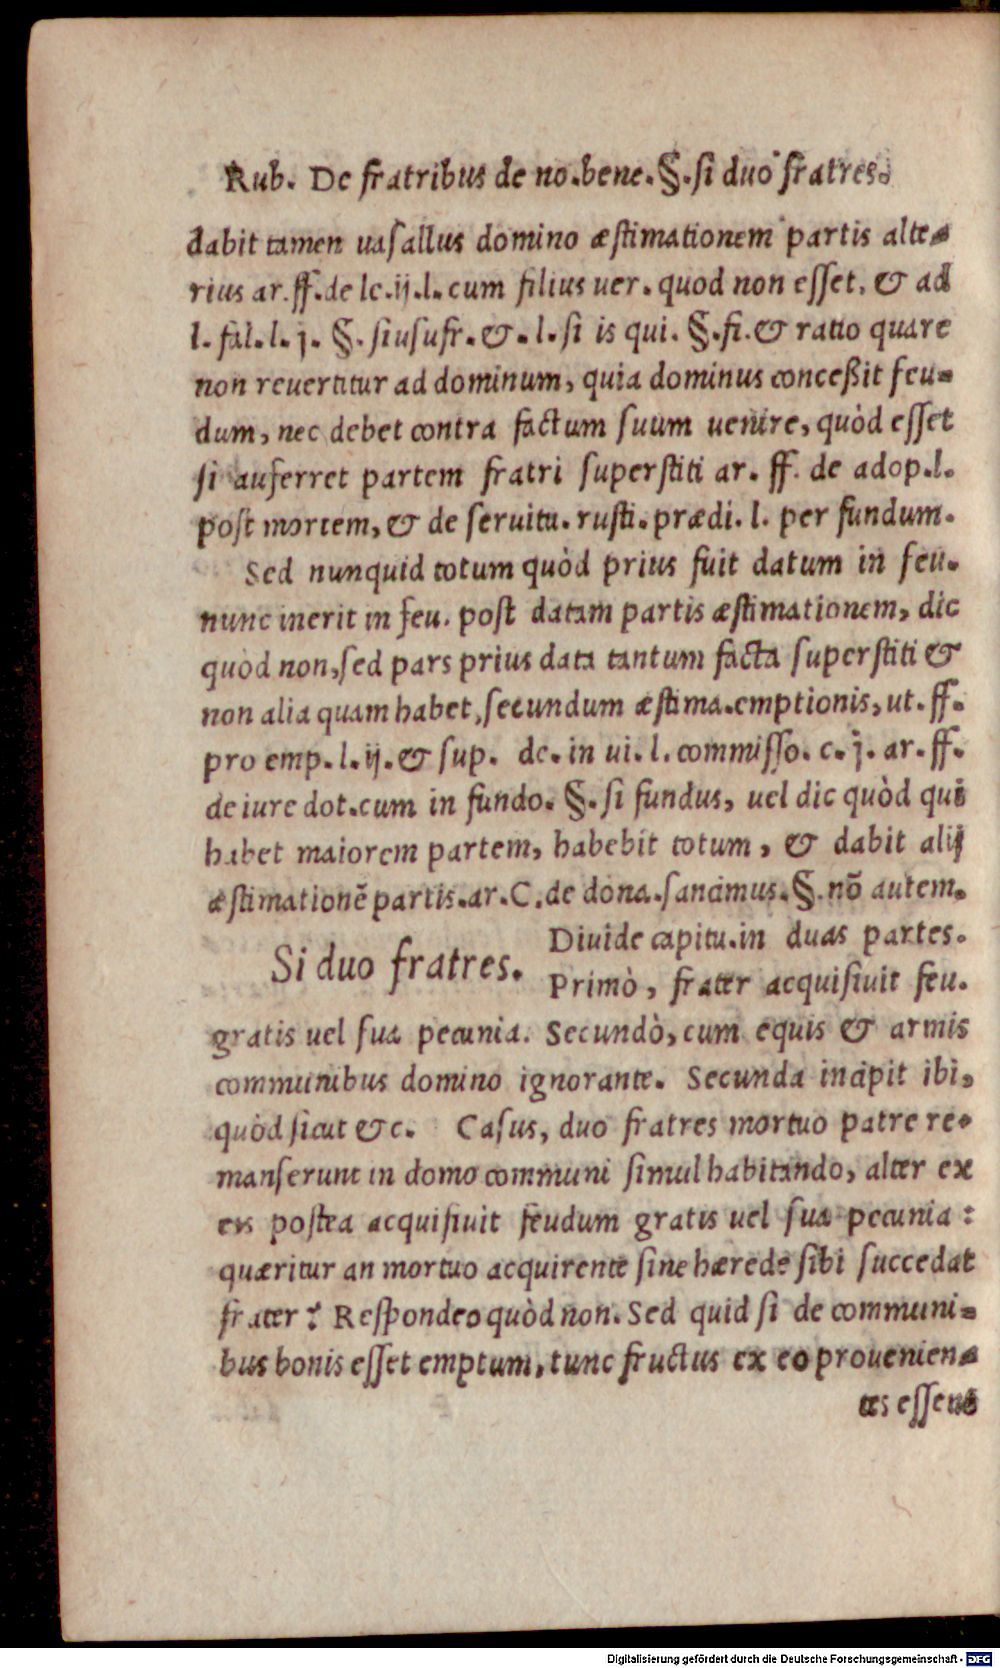 Rub. De fratribus de no.bene.§.si duo fratres.
dabit tamen uasallus domino æstimationem partis alte-
rius ar.ff.de le.ij.l.cum filius uer.quod non esset, & ad
l.fal.l.j. §. siusufr.&.l.si is qui. §.fi.& ratio quare
non reuertitur ad dominum, quia dominus conceßit feu-
dum, nec debet contra factum suum uenire, quòd esset
si auferret partem fratri superstiti ar. ff. de adop.l.
post mortem, & de seruitu.rusti.prædi.l. per fundum.
Sed nunquid totum quòd prius fuit datum in feu.
nunc inerit in feu. post datam partis æstimationem, dic
quòd non, sed pars prius data tantum facta superstiti &
non alia quam habet, secundum æstima.emptionis, ut.ff.
pro emp.l.ij.& sup. de.in ui.l.commisso.c.j. ar.ff.
de iure dot.cum in fundo.§.si fundus, uel dic quòd qui
habet maiorem partem, habebit totum, & dabit alij
æstimationē partis.ar.C.de dona.sancimus.§.nō autem.
Si duo fratres.
Diuide capitu.in duas partes.
Primò, frater acquisiuit feu.
gratis uel sua pecunia. Secundò, cum equis & armis
communibus domino ignorante. Secunda incipit ibi,
quòd sicut &c. Casus, duo fratres mortuo patre re-
manserunt in domo communi simul habitando, alter ex
eis postea acquisiuit feudum gratis uel sua pecunia:
quæritur an mortuo acquirente sine hærede sibi succedat
frater? Respondeo quòd non. Sed quid si de communi-
bus bonis esset emptum, tunc fructus ex eo prouenien-
tes essent
Digitalisierung gefördert durch die Deutsche Forschungsgemeinschaft - DFG